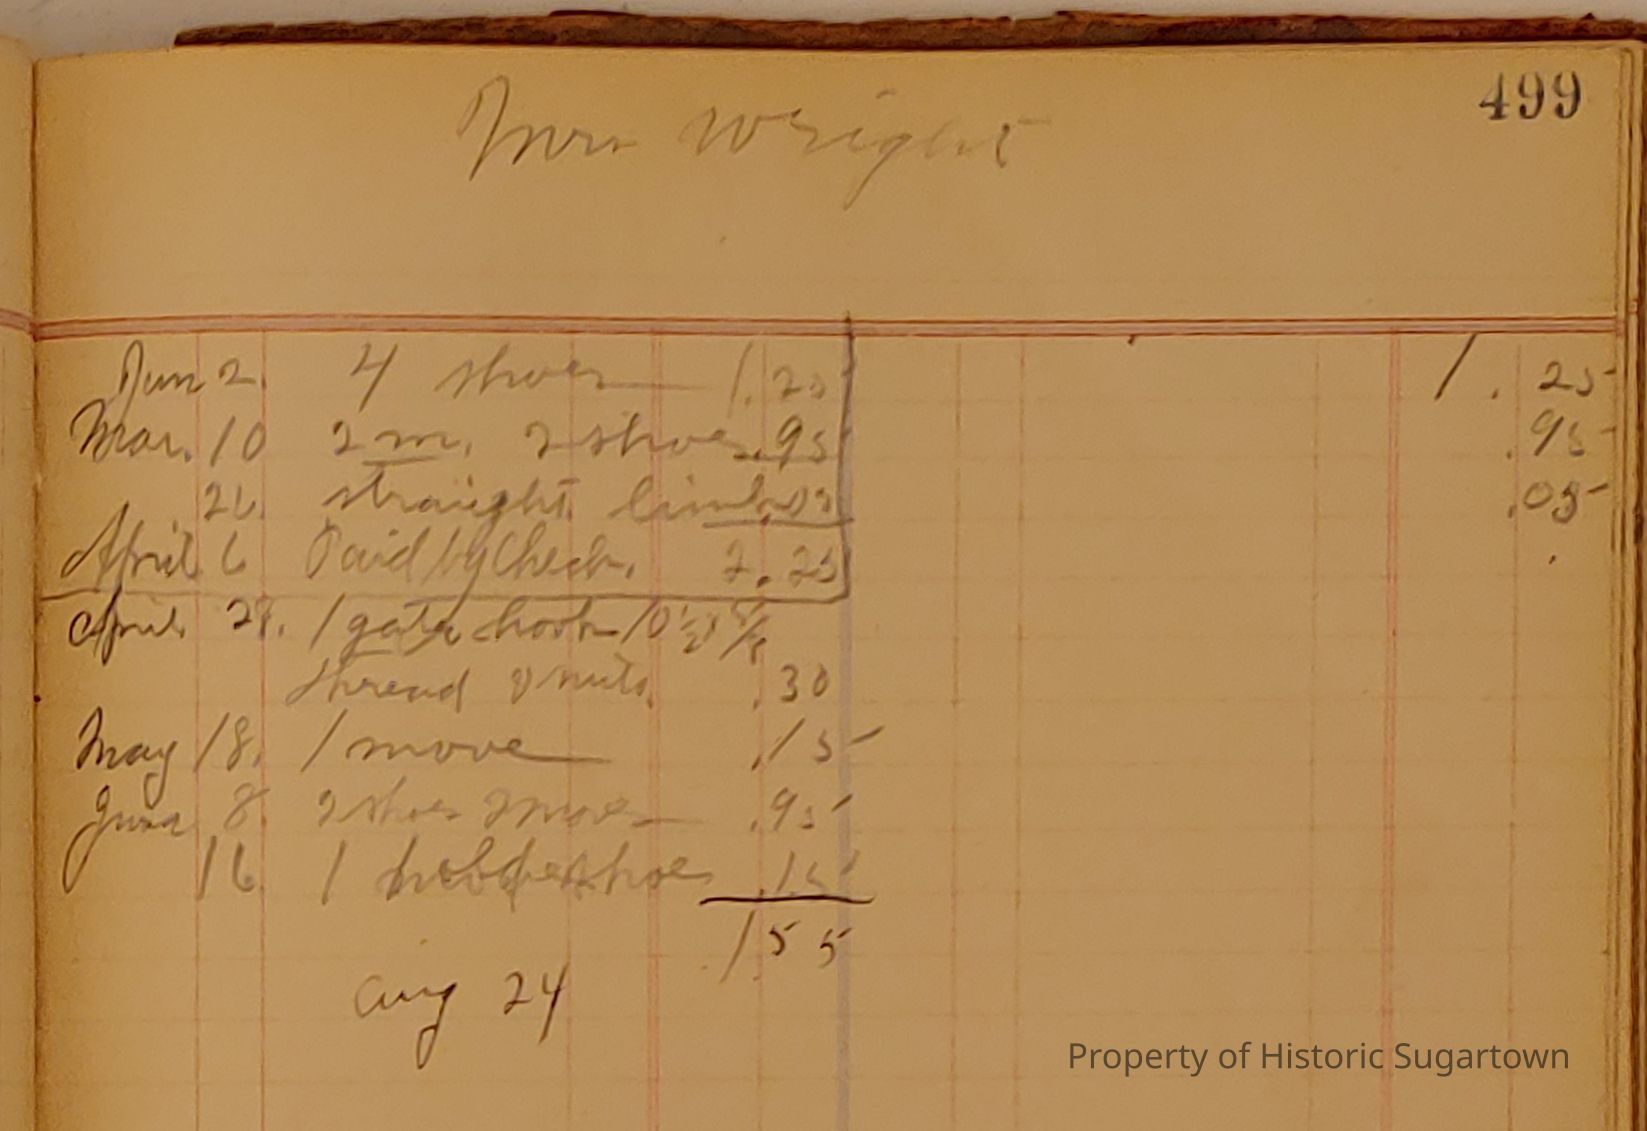 499
Mrs Wright
Jan 2. 4 shoes 1.25 1.25
Mar. 10 2 m. 2 shoes .95 .95
26. straight .05 .05
April 6 Paid by Check. 2.25
April 28. 1 gate hook 10 1/2" 5/8
thread & nuts. .30
May 18. 1 move .15
June 8. 2 shoes 2 moves .95
16. 1 shoe .15
1.55
Aug 24
Property of Historic Sugartown